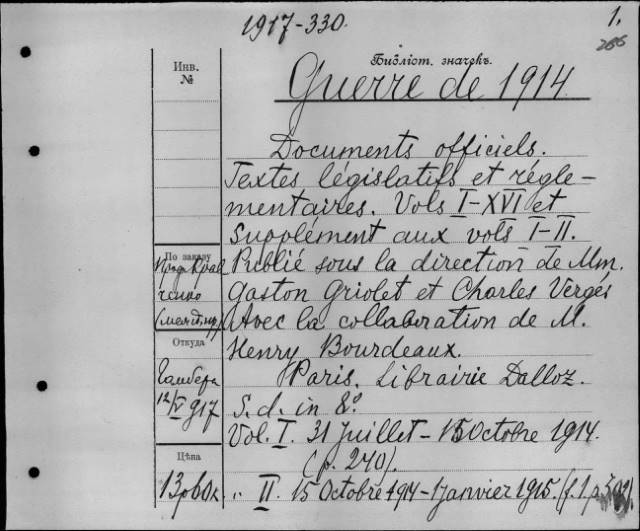 1917-330.
1.
266
Библіот. значекъ.
Инв.
№
Guerre de 1914.
Documents officiels.
Textes législatifs et régle-
mentaires. Vols I-XVI et
Supplément aux vols I-II.
По заказу
Publié sous la direction de Mm.
Gaston Griolet et Charles Vergé
Avec la collaboration de M.
Откуда
Henry Bourdeaux.
Paris. Librairie Dalloz.
12/V 917
S. d. in 8º
Vol. I. 31 Juillet - 15 Octobre 1914.
(p. 240).
Цѣна
13 р 60 к
" II. 15 Octobre 1914 - 1 Janvier 1915.